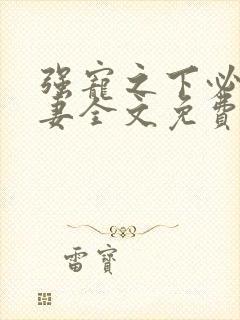 强寵之下必
妻全文免費
雷寶